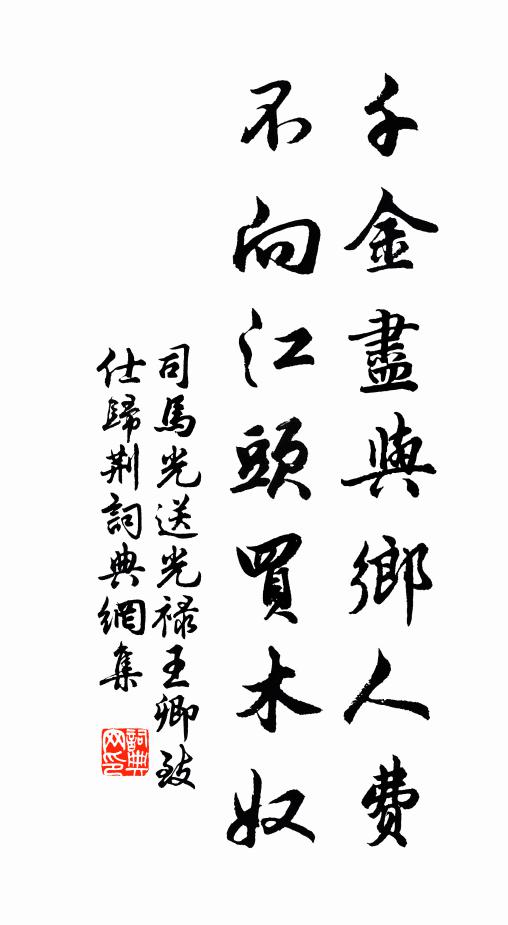 千金盡與鄉人費
不向江頭買木奴
司馬光送光祿王卿致
仕歸荆詞典網集
詞典
网印